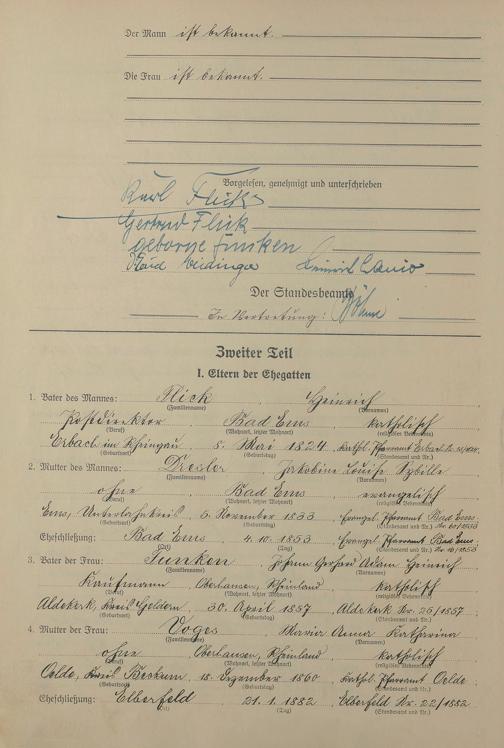 Der Mann ist bekannt.
Die Frau ist bekannt.
Vorgelesen, genehmigt und unterschrieben
Karl Flick
Gertrud Flick
geborne Junken
Heinrich
Der Standesbeamte
In Vertretung:
Zweiter Teil
I. Eltern der Ehegatten
1. Vater des Mannes: Flick Heinrich
(Familienname) (Vornamen)
Postdirektor Bad Ems katholisch
(Beruf) (Wohnort, letzter Wohnort) (religiöses Bekenntnis)
Erbach im Rheingau 5. Mai 1824 Kathol. Pfarramt Erbach
(Geburtsort) (Geburtstag) (Standesamt und Nr.)
2. Mutter des Mannes: Dresler Jakobine Louise Sybille
(Familienname) (Vornamen)
ohne Bad Ems evangelisch
(Beruf) (Wohnort, letzter Wohnort) (religiöses Bekenntnis)
Ems, Unterlahnkreis 5. November 1833 Evangel. Pfarramt Bad Ems
(Geburtsort) (Geburtstag) (Standesamt und Nr.)
Eheschließung: Bad Ems 4. 10. 1853 Evangel. Pfarramt Bad Ems
(Ort) (Tag) (Standesamt und Nr.)
3. Vater der Frau: Junken Johann Gerhard Adam Heinrich
(Familienname) (Vornamen)
Kaufmann Oberhausen, Rheinland katholisch
(Beruf) (Wohnort, letzter Wohnort) (religiöses Bekenntnis)
Aldekerk, Kreis Geldern 30. April 1857 Aldekerk Nr. 25/1857
(Geburtsort) (Geburtstag) (Standesamt und Nr.)
4. Mutter der Frau: Voges Maria Anna Katharina
(Familienname) (Vornamen)
ohne Oberhausen, Rheinland katholisch
(Beruf) (Wohnort, letzter Wohnort) (religiöses Bekenntnis)
Oelde, Kreis Beckum 18. Dezember 1860 Kathol. Pfarramt Oelde
(Geburtsort) (Geburtstag) (Standesamt und Nr.)
Eheschließung: Elberfeld 21. 1. 1882 Elberfeld Nr. 22/1882
(Ort) (Tag) (Standesamt und Nr.)